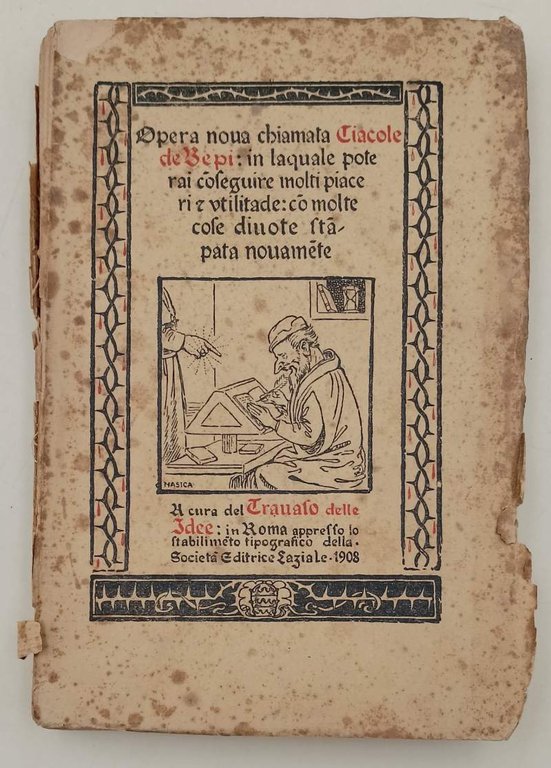 Opera noua chiamata Ciacole
de Bepi: in laquale pote
rai cõseguire molti piace
ri ⁊ vtilitade: cõ molte
coſe diuote ſtã-
pata nouamẽte
NASICA
A cura del Trauaſo delle
Idee: in Roma appreſſo lo
ſtabilimẽto tipografico della.
Società Editrice Laziale-1908